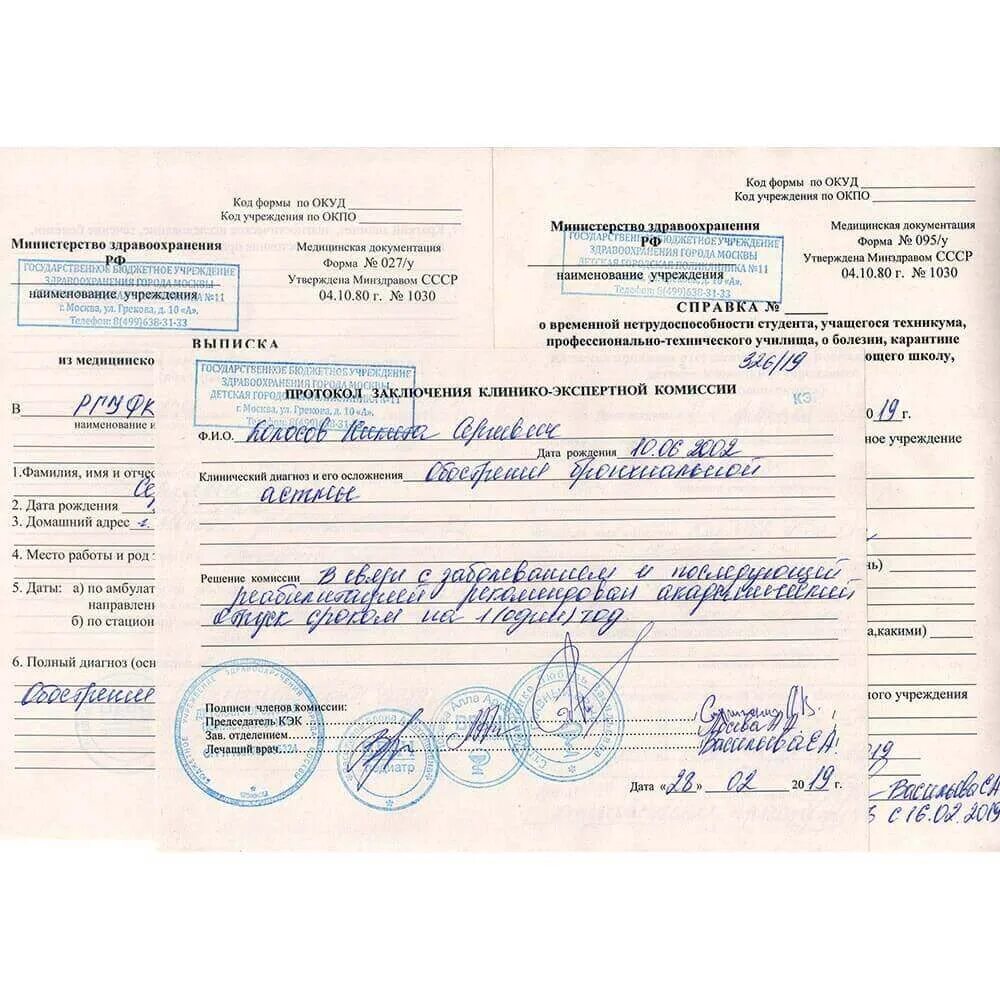 Код формы по ОКУД
Код учреждения по ОКПО
Министерство здравоохранения
РФ
наименование учреждения
ГОСУДАРСТВЕННОЕ БЮДЖЕТНОЕ УЧРЕЖДЕНИЕ
ЗДРАВООХРАНЕНИЯ ГОРОДА МОСКВЫ
№11
г. Москва, ул. Грекова, д. 10 «А».
Телефон: 8(499)638-31-33
Медицинская документация
Форма № 027/у
Утверждена Минздравом СССР
04.10.80 г. № 1030
ВЫПИСКА
из медицинско
В РГУФК
наименование и
1.Фамилия, имя и отчес
Се
2. Дата рождения
3. Домашний адрес г.
4. Место работы и род
5. Даты: а) по амбулат
направлен
б) по стацион
6. Полный диагноз (осн
Обострение
Код формы по ОКУД
Код учреждения по ОКПО
Министерство здравоохранения
РФ
наименование учреждения
ГОСУДАРСТВЕННОЕ БЮДЖЕТНОЕ УЧРЕЖДЕНИЕ
ЗДРАВООХРАНЕНИЯ ГОРОДА МОСКВЫ
ДЕТСКАЯ ГОРОДСКАЯ ПОЛИКЛИНИКА №11
8(499)638-31-33
Медицинская документация
Форма № 095/у
Утверждена Минздравом СССР
04.10.80 г. № 1030
СПРАВКА №
о временной нетрудоспособности студента, учащегося техникума,
профессионально-технического училища, о болезни, карантине
ющего школу,
326/19
019 г.
ное учреждение
нь)
а,какими)
ного учреждения
19
Васильева С А
с 16.02.2019
ГОСУДАРСТВЕННОЕ БЮДЖЕТНОЕ УЧРЕЖДЕНИЕ
ЗДРАВООХРАНЕНИЯ ГОРОДА МОСКВЫ
ДЕТСКАЯ ГОРОДСКАЯ №11
г. Москва, ул. Грекова, д. 10 «А».
ПРОТОКОЛ ЗАКЛЮЧЕНИЯ КЛИНИКО-ЭКСПЕРТНОЙ КОМИССИИ
КЭ
Ф.И.О. Колосов Никита Сергеевич
Дата рождения 10.06 2002
Клинический диагноз и его осложнения Обострение бронхиальной
астмы
Решение комиссии В связи с заболеванием и последующей
реабилитацией рекомендован академический
отпуск сроком на 1(один) год
Подписи членов комиссии:
Председатель КЭК
Зав. отделением
Лечащий врач
Васильева С А
Дата «28» 02 2019 г.